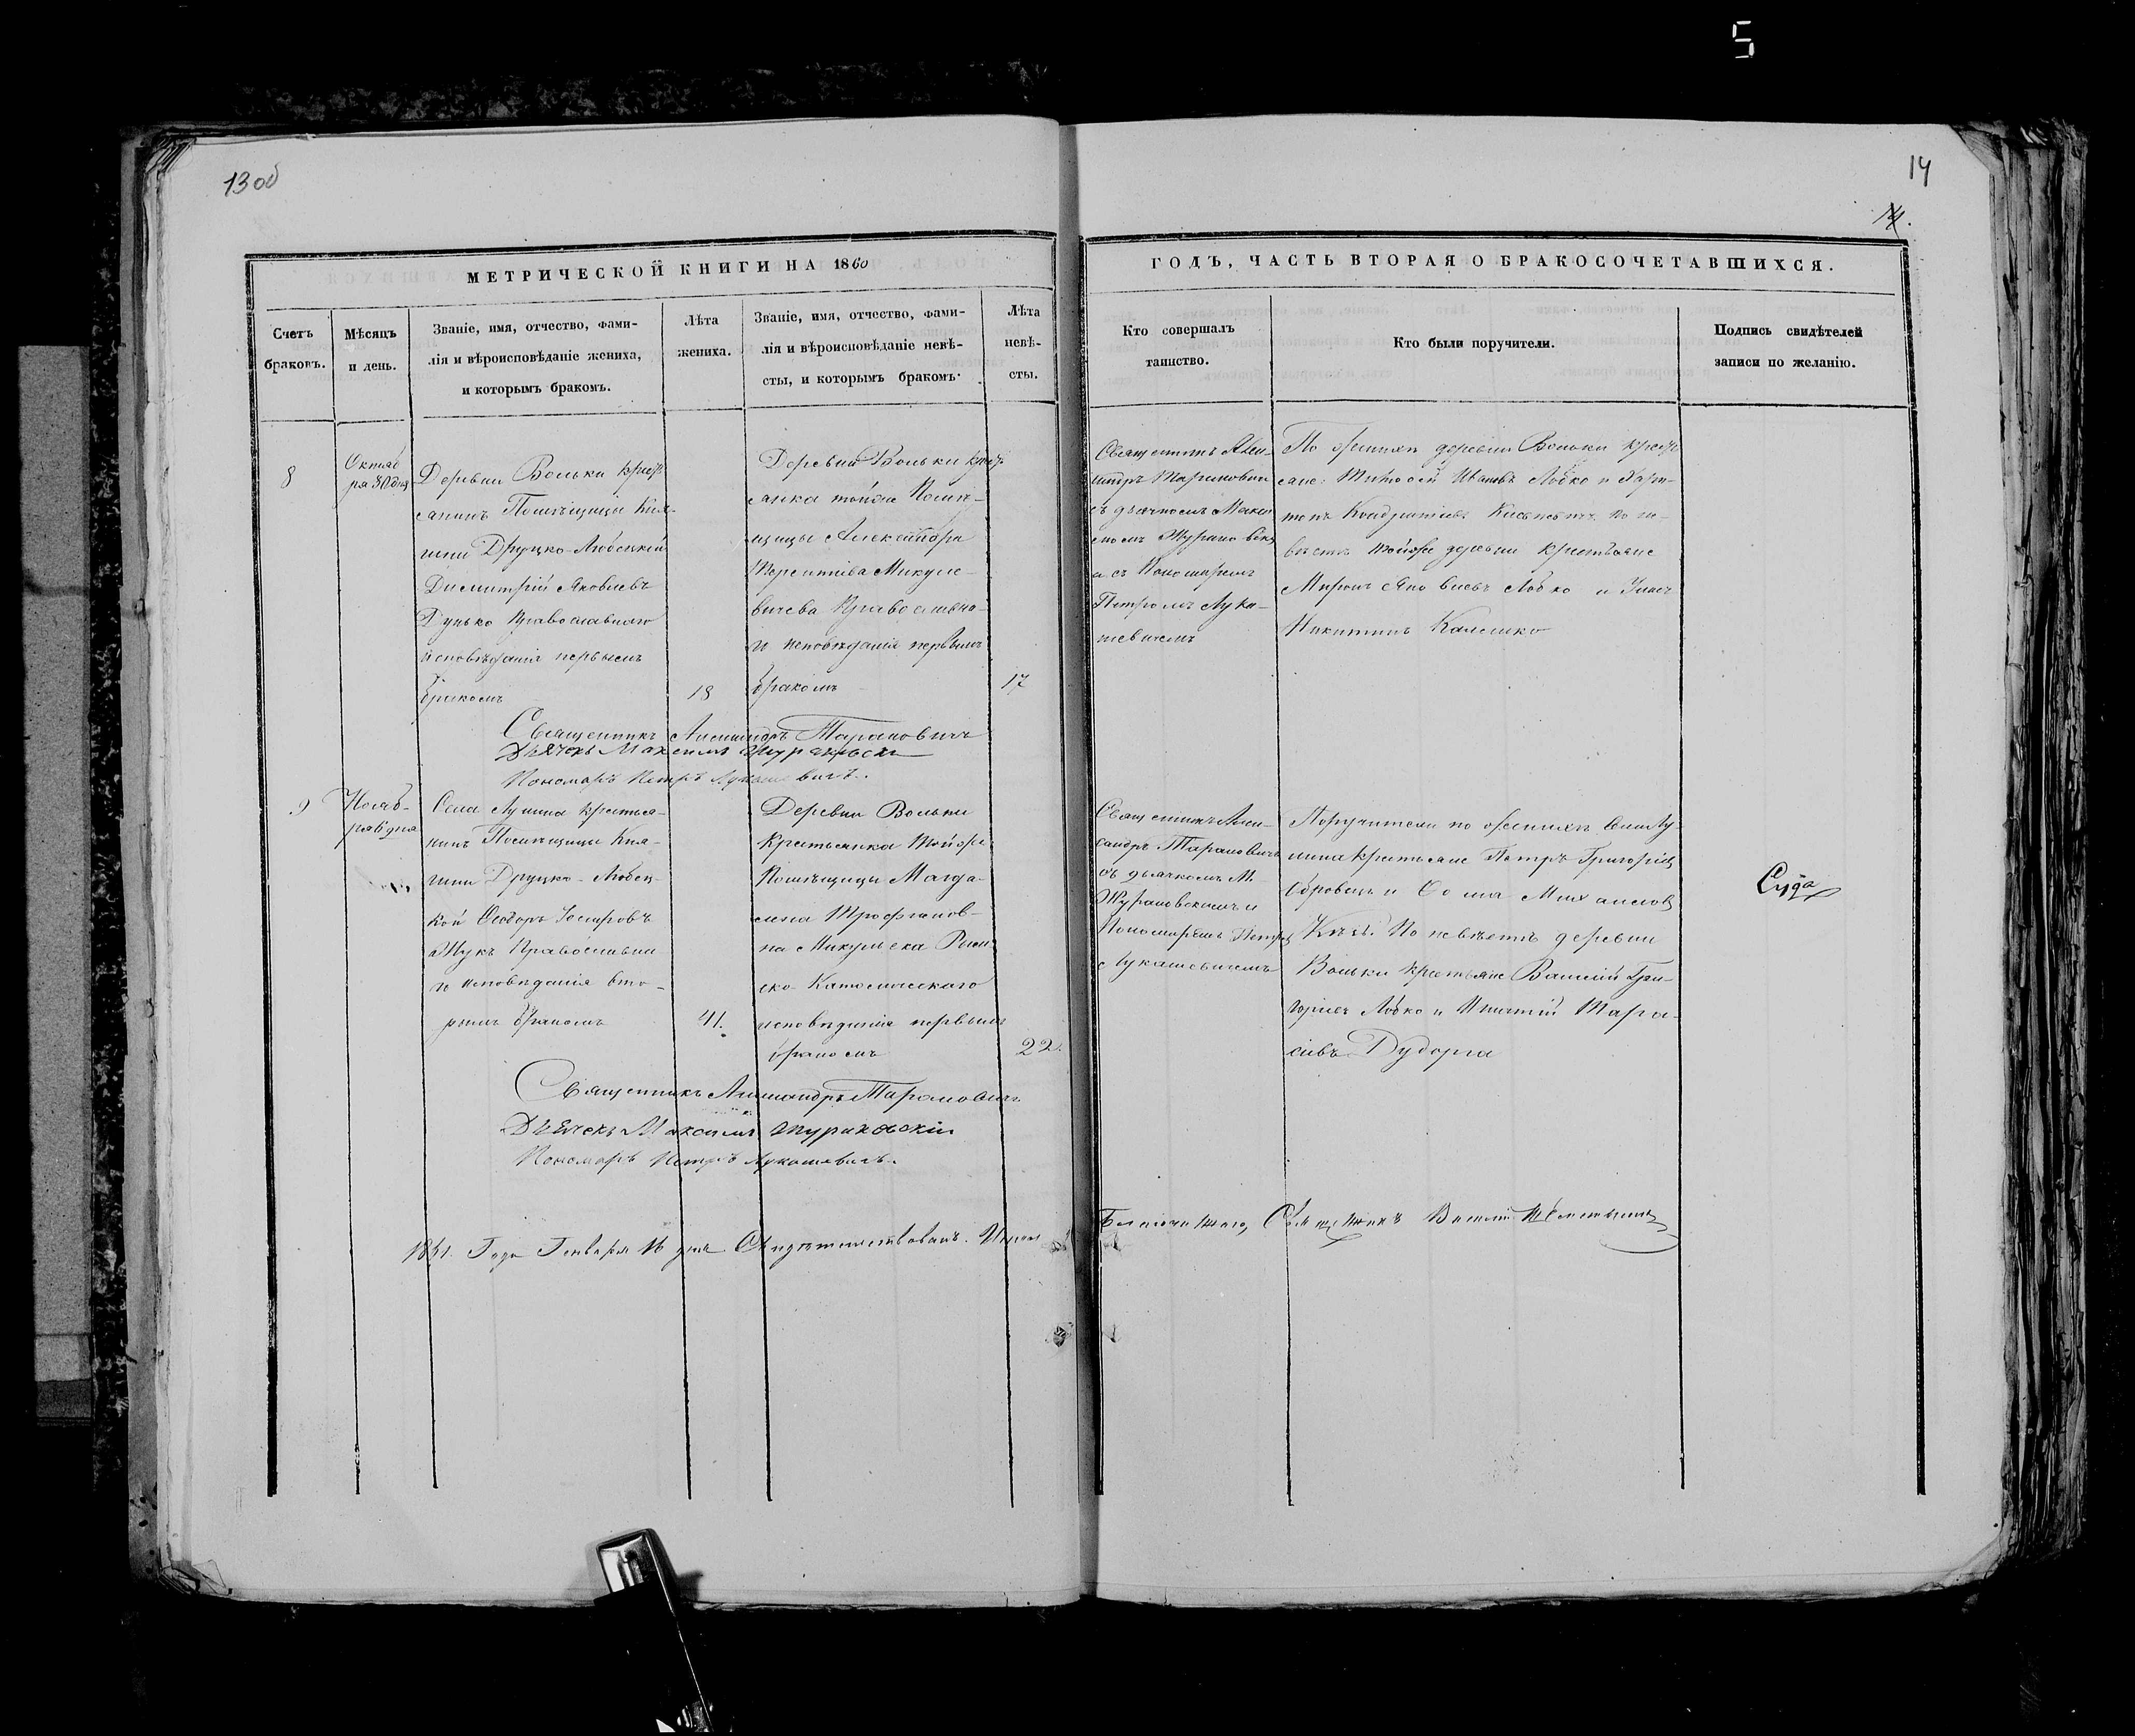 5
13 об
14
14.
МЕТРИЧЕСКОЙ КНИГИ НА 1860
ГОДЪ, ЧАСТЬ ВТОРАЯ О БРАКОСОЧЕТАВШИХСЯ.
Счетъ
браковъ.
Мѣсяцъ
и день.
Званіе, имя, отчество, фами-
лія и вѣроисповѣданіе жениха,
и которымъ бракомъ.
Лѣта
жениха.
Званіе, имя, отчество, фами-
лія и вѣроисповѣданіе невѣ-
сты, и которымъ бракомъ.
Лѣта
невѣ-
сты.
Кто совершалъ
таинство.
Кто были поручители.
Подпись свидѣтелей
записи по желанію.
8
Октяб
ря 30 дня
Деревни Вольки крест
янинъ Помѣщицы Кня-
гини Друцко-Любецкой
Димитрій Яковлевъ
Дунько Православнаго
исповѣданія первымъ
бракомъ
18
Деревни Вольки крест
янка тойже Помѣ-
щицы Александра
Терентіева Микуле-
вичева Православна-
го исповѣданія первымъ
бракомъ
17
Священникъ Алек-
сандръ Таранович
съ дьячкомъ Макси
момъ Жураковски
и съ Пономаремъ
Петромъ Лука-
шевичемъ
По женихѣ деревни Вольки крест
яне: Тимофей Ивановъ Лобко и Хари-
тонъ Кондратіевъ По не-
вѣстѣ тойже деревни крестьяне
Миронъ Яковлевъ Лобко и Игнат
Никитинъ
Священникъ Александръ Тарановичъ
Дьячекъ Максимъ Жураковскій
Пономарь Петръ Лукашевичъ.
9
Нояб-
ря 6 дня
Села Лунина крестья-
нинъ Помѣщицы Кня-
гини Друцко-Любец-
кой Ѳеодоръ
Жукъ Православна
го исповѣданія вто-
рымъ бракомъ
41.
Деревни Вольки
Крестьянка тойже
Помѣщицы Магда-
лена Трофимов-
на Микульска Рим-
ско-Католическаго
исповѣданія первымъ
бракомъ
22.
Священникъ Алек-
сандръ Тарановичъ
съ дьячкомъ М.
Жураковскимъ и
Пономаремъ Петром
Лукашевичемъ
Поручители по женихѣ села Лу-
нина крестьяне Петръ Григорьев
и Ѳома Михаилов
По невѣстѣ деревни
Вольки крестьяне Василій Гри-
горьев Лобко и Игнатій Тара-
сивъ
Суда
Священникъ Александръ Тарановичъ
Дьячекъ Максимъ Жураковскій
Пономарь Петръ Лукашевичъ.
1861. Года Генваря 16 дня Свидѣтельствовалъ.
Благочиннаго, Священникъ